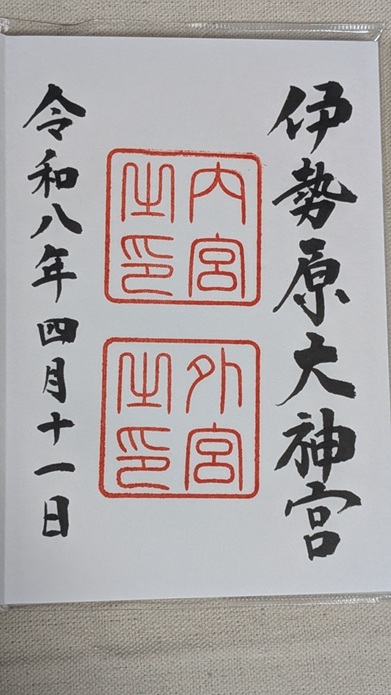 伊勢原大神宮
内宮之印
外宮之印
令和八年四月十一日